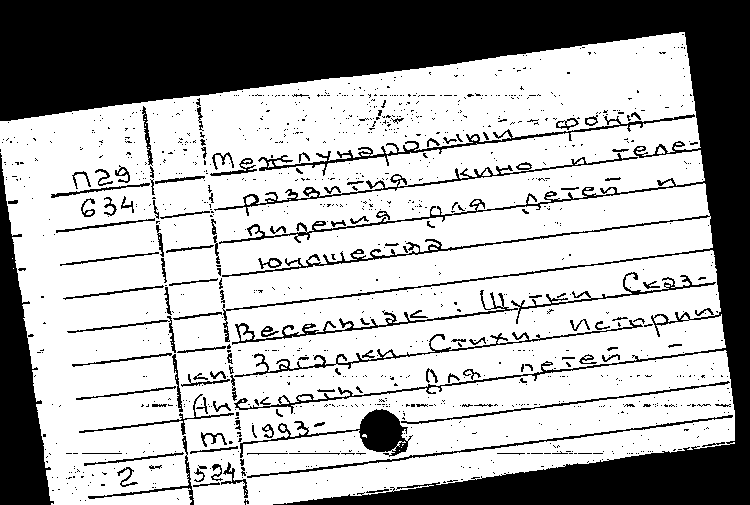 П29
634
Международный фонд
развития кино и теле-
видения для детей и
юношества
Весельчак: Шутки. Сказ-
ки. Загадки. Стихи. Истории.
Анекдоты: Для детей. -
т. 1993-
2 - 524